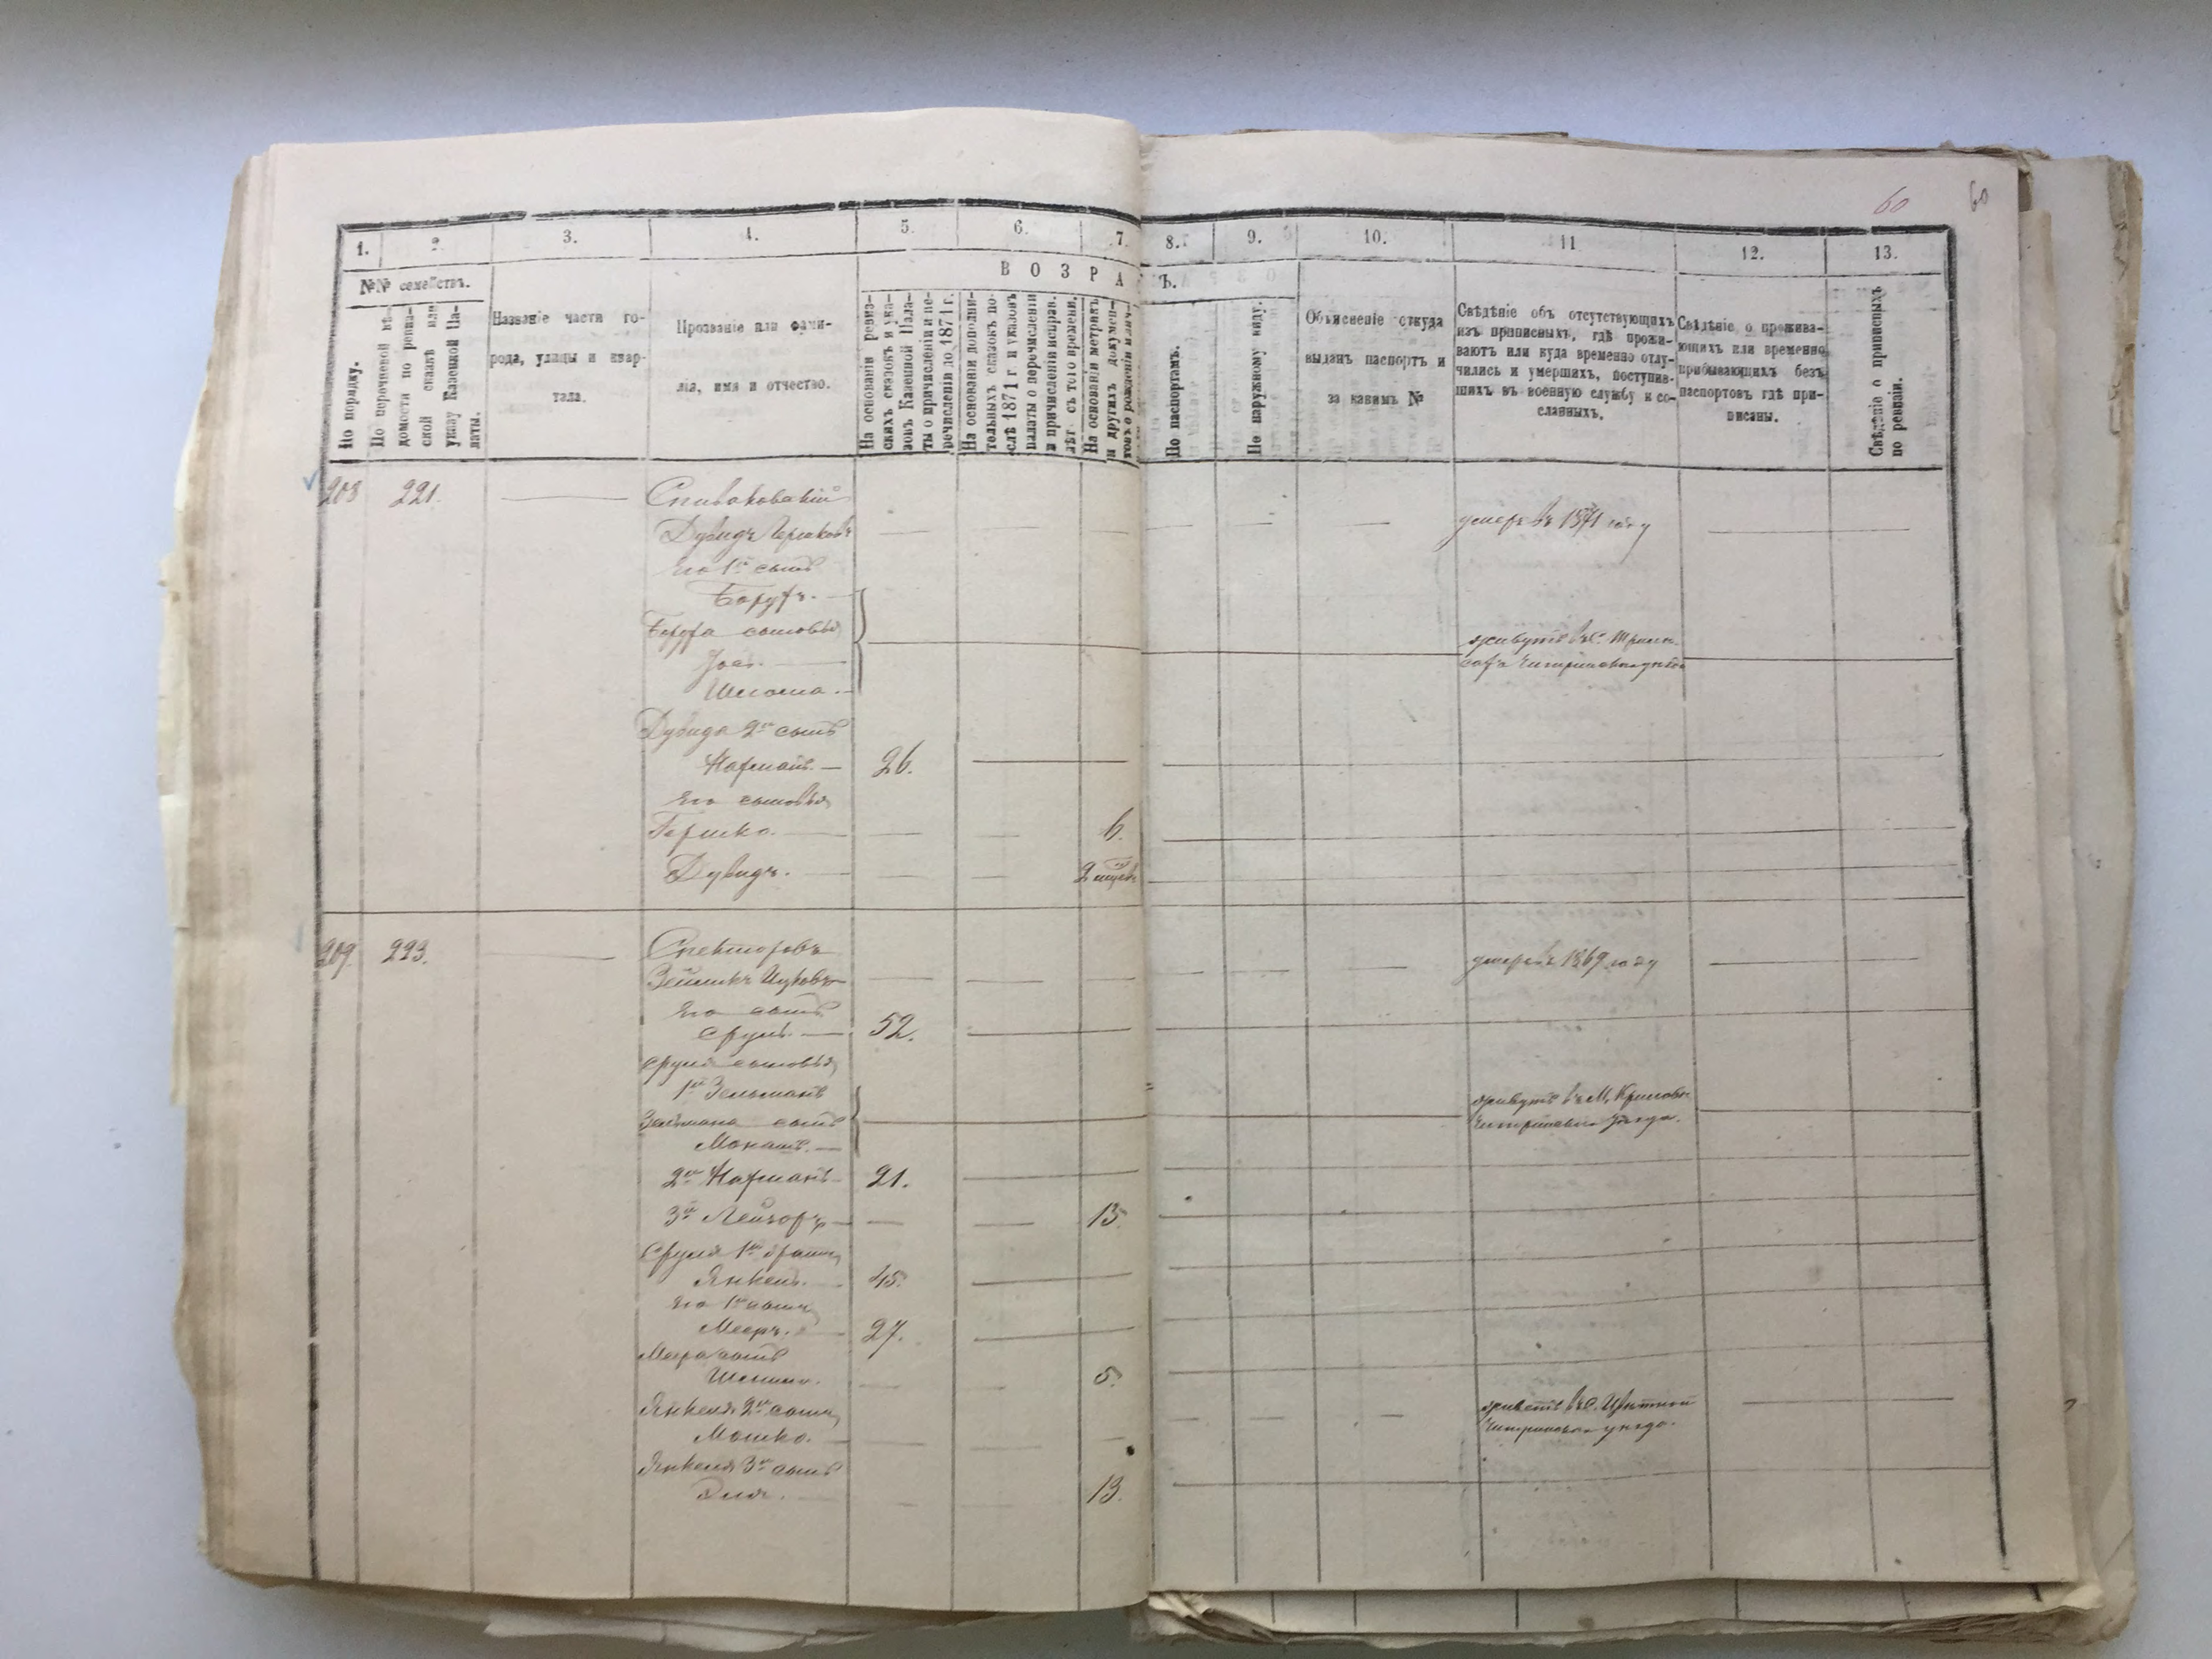 60 60
1. 2. 3. 4. 5. 6. 7. 8. 9. 10. 11 12. 13.
№№ семействъ.
В О З Р А
Ъ.
По порядку.
По перечневой вѣ-
домости по ревиз-
ской сказкѣ или
указу Казенной Па-
латы.
Названіе части го-
рода, улицы и квар-
тала.
Прозваніе или фами-
лія, имя и отчество.
На основаніи ревиз-
скихъ сказокъ и ука-
зовъ Казенной Пала-
ты о причисленіи и пе-
речисленіи до 1871 г.
На основаніи дополни-
тельныхъ сказокъ по-
слѣ 1871 г. и указовъ
палаты о перечисленіи
и причисленіи исправ.
лѣт. съ того времени.
На основаніи метрик.
и другихъ докумен-
товъ о рожденіи
По паспортамъ.
По наружному виду.
Объясненіе откуда
выданъ паспортъ и
за какимъ №
Свѣдѣніе объ отсутствующихъ
изъ приписныхъ, гдѣ прожи-
ваютъ или куда временно отлу-
чились и умершихъ, поступив-
шихъ въ военную службу и со-
сланныхъ.
Свѣдѣніе о прожива-
ющихъ или временно
прибывающихъ безъ
паспортовъ гдѣ при-
писаны.
Свѣдѣніе о приписныхъ
по ревизіи.
208 221. Спиваковскій
Дувидъ Гершковъ умеръ въ 1871 году
Его 1й сынъ
Борухъ.
Боруха сыновья живутъ въ с.
Іось. Чигиринскаго уѣзда
Шлема.
Дувида 2й сынъ
Нахманъ. 26.
Его сыновья
Гершко. 6.
Дувидъ. 2
209. 223. Спекторовъ умеръ въ 1869 году
Зейликъ Ицковъ
Его сынъ
Сруль. 52.
Сруля сыновья
1й Зельманъ живутъ въ М. Криловѣ
Зельмана сынъ Чигиринскаго уѣзда.
Монашъ.
2й Нахманъ 21.
3й Лейзоръ 15.
Сруля 1й братъ
Янкель. 45.
Его 1й сынъ
Мееръ. 27.
Меера сынъ
5.
Янкеля 2й сынъ живетъ въ с. Цвѣтной
Мошко. Чигиринскаго уѣзда.
Янкеля 3й сынъ
Эля. 13.